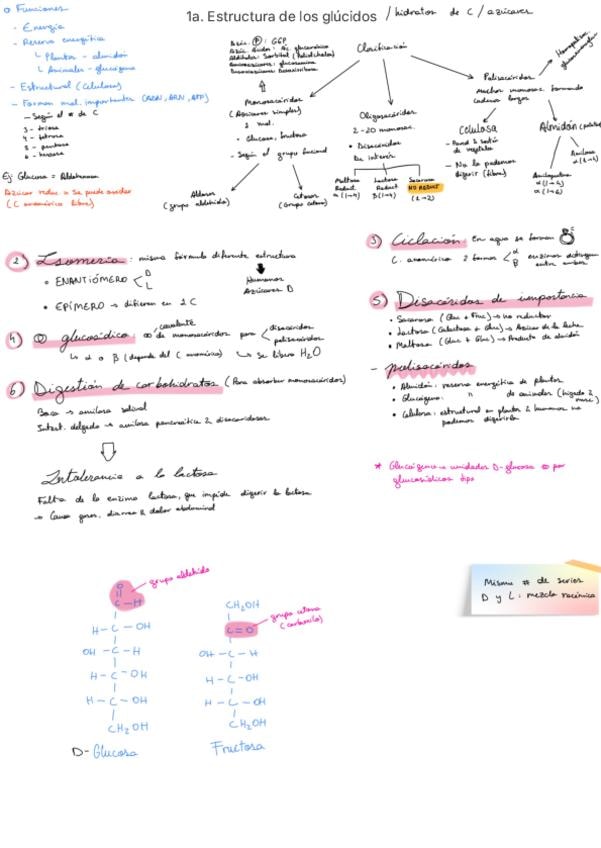 1a. Estructura de los glúcidos / hidratos de C / azúcares
o Funciones
- Energía
- Reserva energética
└ Plantas - almidón
└ Animales - glucógeno
- Estructural (Celulosa)
- Forman mol. importantes (ADN, ARN, ATP)
- Según el # de C
3 - triosa
4 - tetrosa
5 - pentosa
6 - hexosa
Ej: Glucosa = Aldohexosa
Azúcar reduc → Se puede oxidar
(C anomérico libre)
Clasificación
Monosacáridos
(Azúcares simples)
1 mol.
• Glucosa, fructosa
- Según el grupo funcional
Aldosas
(grupo aldehído)
Cetosas
(Grupo cetona)
Oligosacáridos
2-20 monosac.
• Disacáridos
De interés
Maltosa
Reduct
α (1→4)
Lactosa
Reduct
β (1→4)
Sacarosa
NO REDUCT
(1→2)
Polisacáridos
muchos monosac. formando
cadenas largas
Celulosa
- Pared & sostén
de vegetales
- No la podemos
digerir (fibra)
Almidón
Amilosa
α (1→4)
Amilopectina
α (1→4)
α (1→6)
2) Isomería: misma fórmula diferente estructura
• ENANTIÓMERO < D L
Humanos
Azúcares D
• EPÍMERO → difieren en 1 C
3) Ciclación: En agua se forman
C. anomérico 2 formas < α β enzimas distinguen
entre ambas
4) glucosídico: covalente de monosacáridos para < disacáridos polisacáridos
↳ α o β (depende del C anomérico) ↳ se libera H2O
5) Disacáridos de importancia
• Sacarosa (Glu + Fruc) → no reductor
• Lactosa (Galactosa + Glus) → Azúcar de la leche
• Maltosa (Gluc + Glus) → Producto de almidón
- polisacáridos
• Almidón: reserva energética de plantas
• Glucógeno: " de animales (hígado & musc)
• Celulosa: estructural en plantas & humanos no
podemos digerirla
6) Digestión de carbohidratos (Para absorber monosacáridos)
Boca → amilasa salival
Intest. delgado → amilasa pancreática & disacaridasas
Intolerancia a la lactosa
Falta de la enzima lactasa, que impide digerir la lactosa
→ Causa gases, diarrea & dolor abdominal
* Glucógeno → unidades D-glucosa por
glucosídicos
Mismo # de series
D y L: mezcla racémica
grupo aldehído
O
C — H
H — C — OH
OH — C — H
H — C — OH
H — C — OH
CH2OH
D-Glucosa
CH2OH
grupo cetona
(carbonilo)
C = O
OH — C — H
H — C — OH
H — C — OH
CH2OH
Fructosa